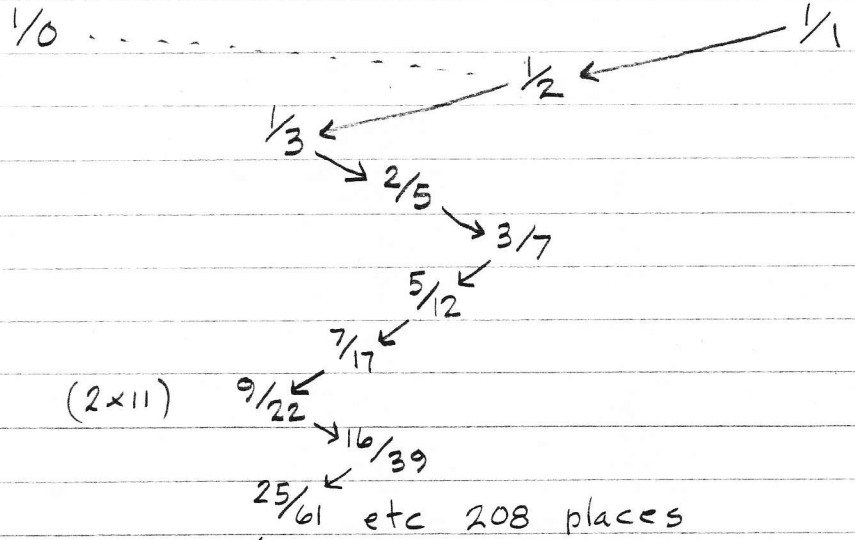 1/0 1/1
1/2
1/3
2/5
3/7
5/12
7/17
(2×11) 9/22
16/39
25/61 etc 208 places